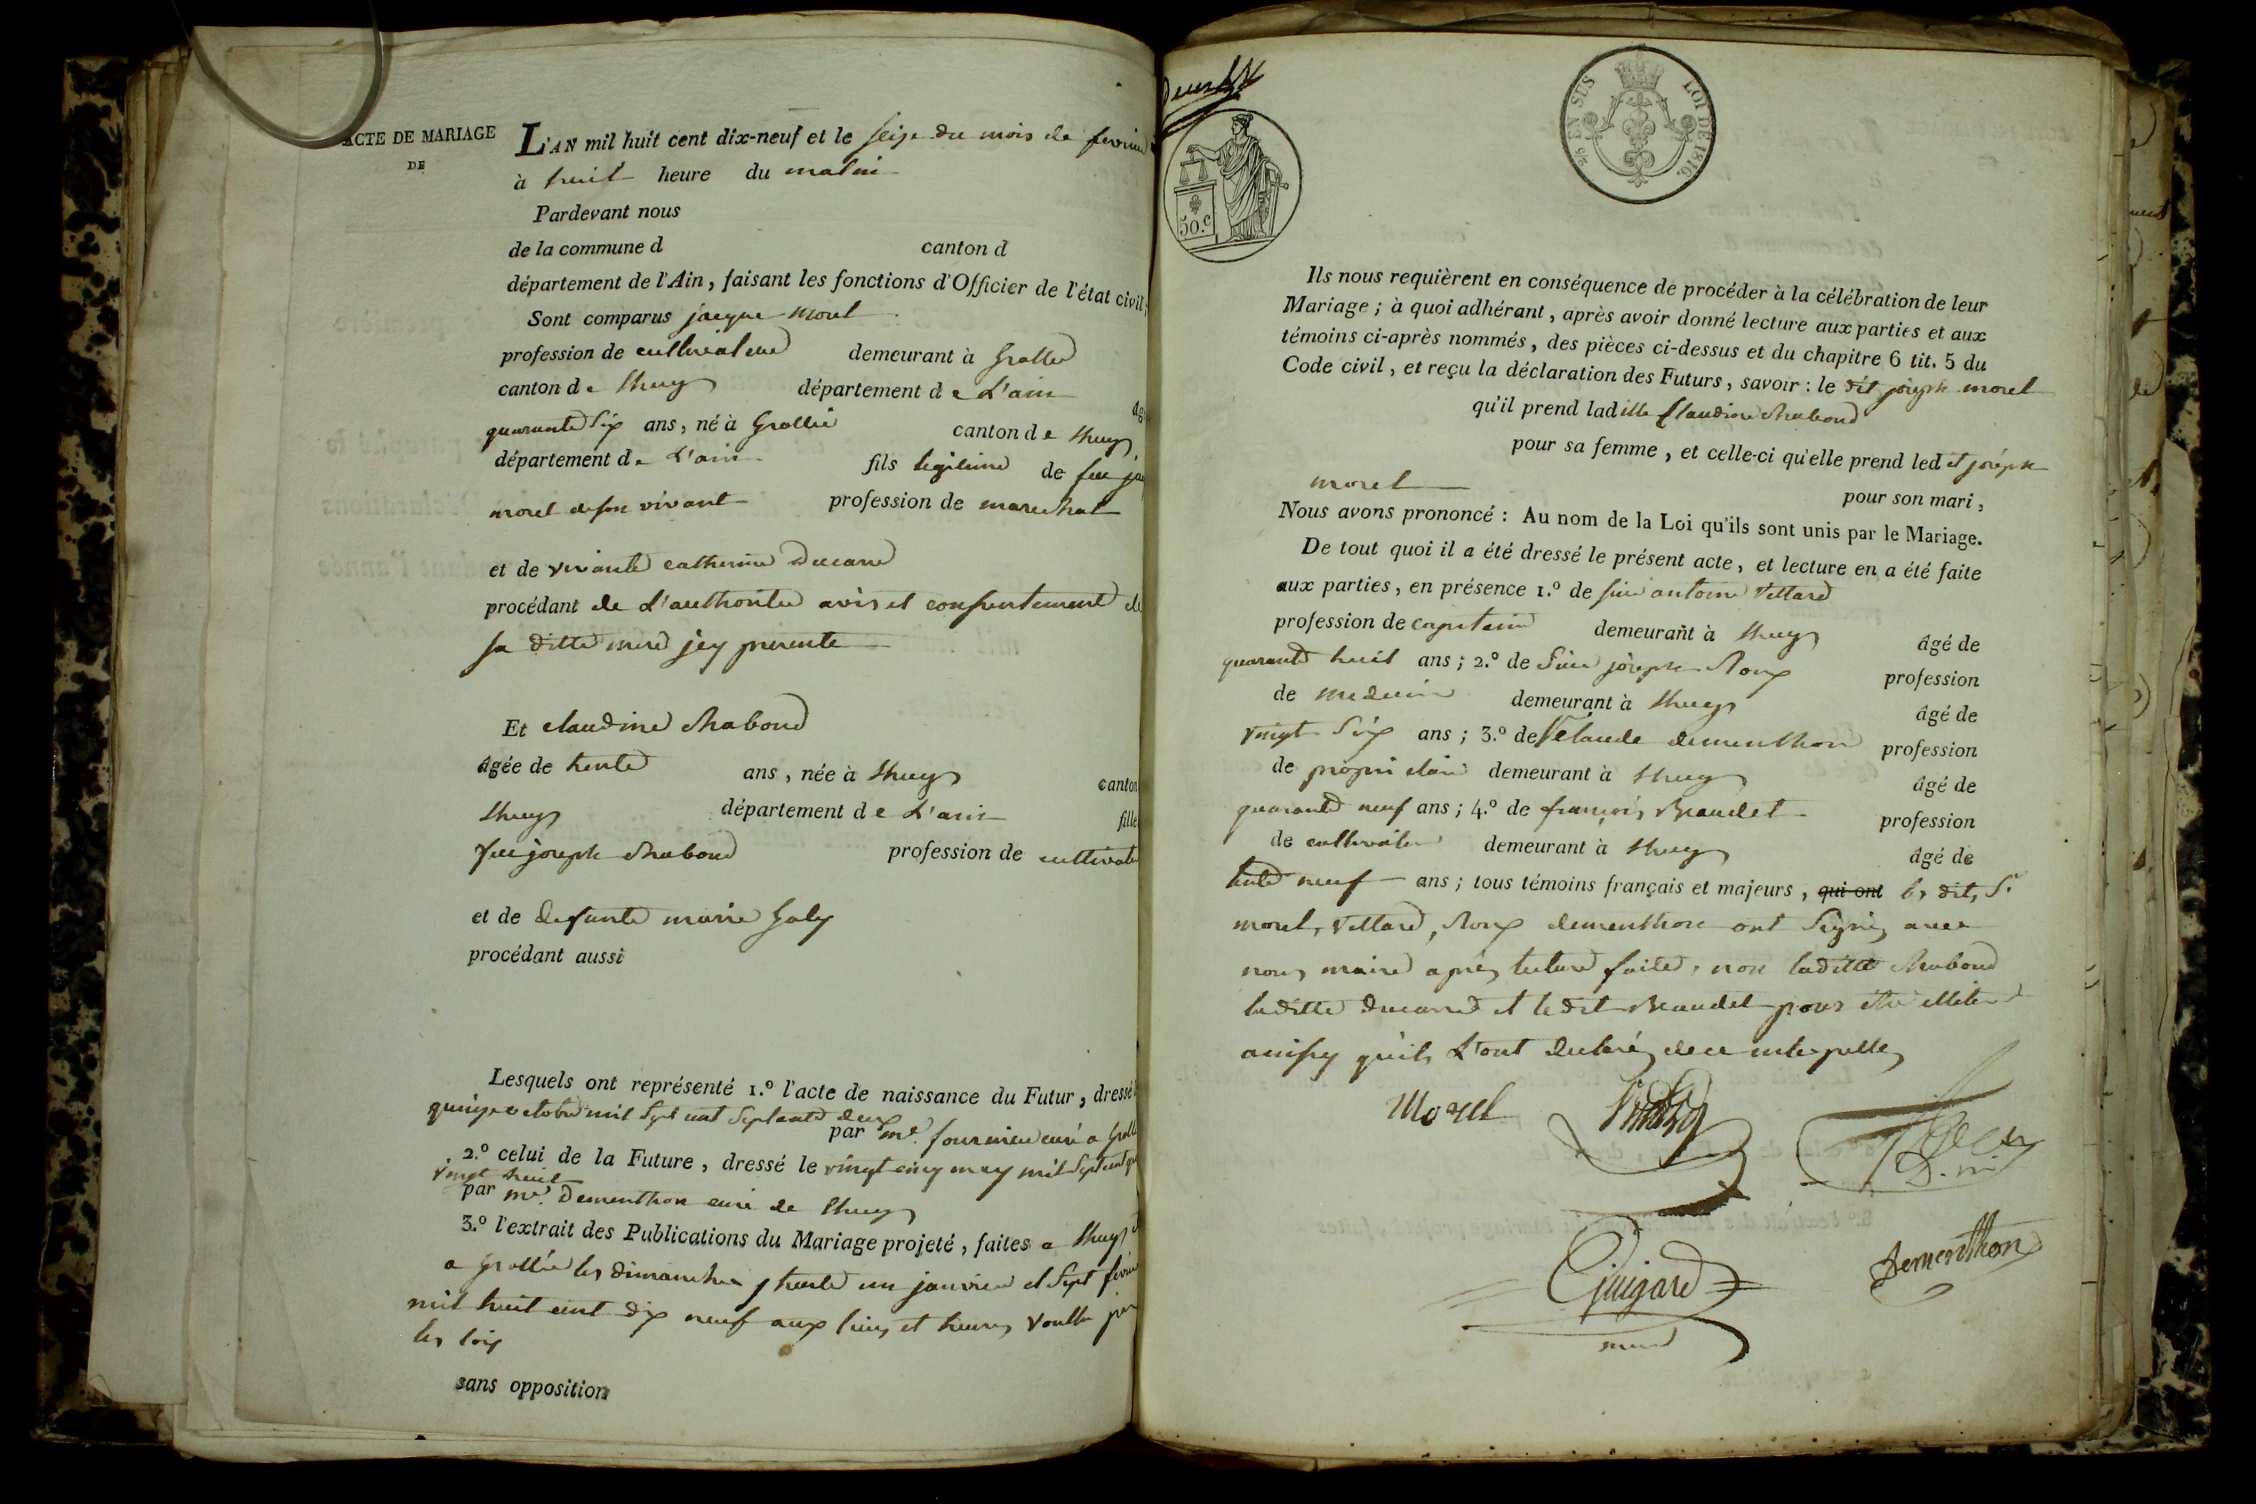 ACTE DE MARIAGE
DE
L'AN mil huit cent dix-neuf et le seize du mois de fevrier
à huit heure du matin
Pardevant nous
de la commune d canton d
département de l'Ain, faisant les fonctions d'Officier de l'état civil,
Sont comparus jacque morel
profession de cultivateur demeurant à Grollée
canton de Lhuys département de L'ain
quarante six ans, né à Grollée canton de Lhuys
département de L'ain fils legitime de feu
morel de son vivant profession de marechal
et de vivante catherine Ducarre
procédant de L'authorité avis et consentement de
sa ditte mere jcy presente
Et claudine chaboud
âgée de trente ans, née à Lhuys canton
Lhuys département de L'ain fille
feu joseph chaboud profession de cultivateur
et de defunte marie Galy
procédant aussi
Lesquels ont représenté 1.º l'acte de naissance du Futur, dressé
quinze octobre mil sept cent septante deux
par me. fournier curé a
2.º celui de la Future, dressé le vingt cinq may mil sept cent
vingt huit
par me. Dementhon curé de Lhuys
3.º l'extrait des Publications du Mariage projeté, faites a Lhuys
a Grollée les dimanches trente un janvier et sept fevrier
mil huit cent dix neuf aux lieux et heures voullu par
les lois
sans opposition
EN SUS
LOI DE 1816.
50.c
Ils nous requièrent en conséquence de procéder à la célébration de leur
Mariage; à quoi adhérant, après avoir donné lecture aux parties et aux
témoins ci-après nommés, des pièces ci-dessus et du chapitre 6 tit. 5 du
Code civil, et reçu la déclaration des Futurs, savoir: le dit joseph morel
qu'il prend laditte Claudine chaboud
pour sa femme, et celle-ci qu'elle prend ledit joseph
morel pour son mari,
Nous avons prononcé: Au nom de la Loi qu'ils sont unis par le Mariage.
De tout quoi il a été dressé le présent acte, et lecture en a été faite
aux parties, en présence 1.º de sieur antoine Vettard
profession de capitaine demeurant à Lhuys âgé de
quarante huit ans; 2.º de sieur joseph Roux profession
de medecin demeurant à Lhuys âgé de
vingt six ans; 3.º de Sr claude dementhon profession
de proprietaire demeurant à Lhuys âgé de
quarante neuf ans; 4.º de françois Beaudet profession
de cultivateur demeurant à Lhuys âgé de
trente neuf ans; tous témoins français et majeurs, qui ont les dits Sr
morel, Vettard, Roux dementhon ont signés avec
nous maire après lecture faitte, non laditte chaboud
laditte Ducarre et ledit Beaudet pour être illiteré
ainsy qu'ils L'ont declarés de ce interpellés
Morel
Dementhon
Guigard
maire